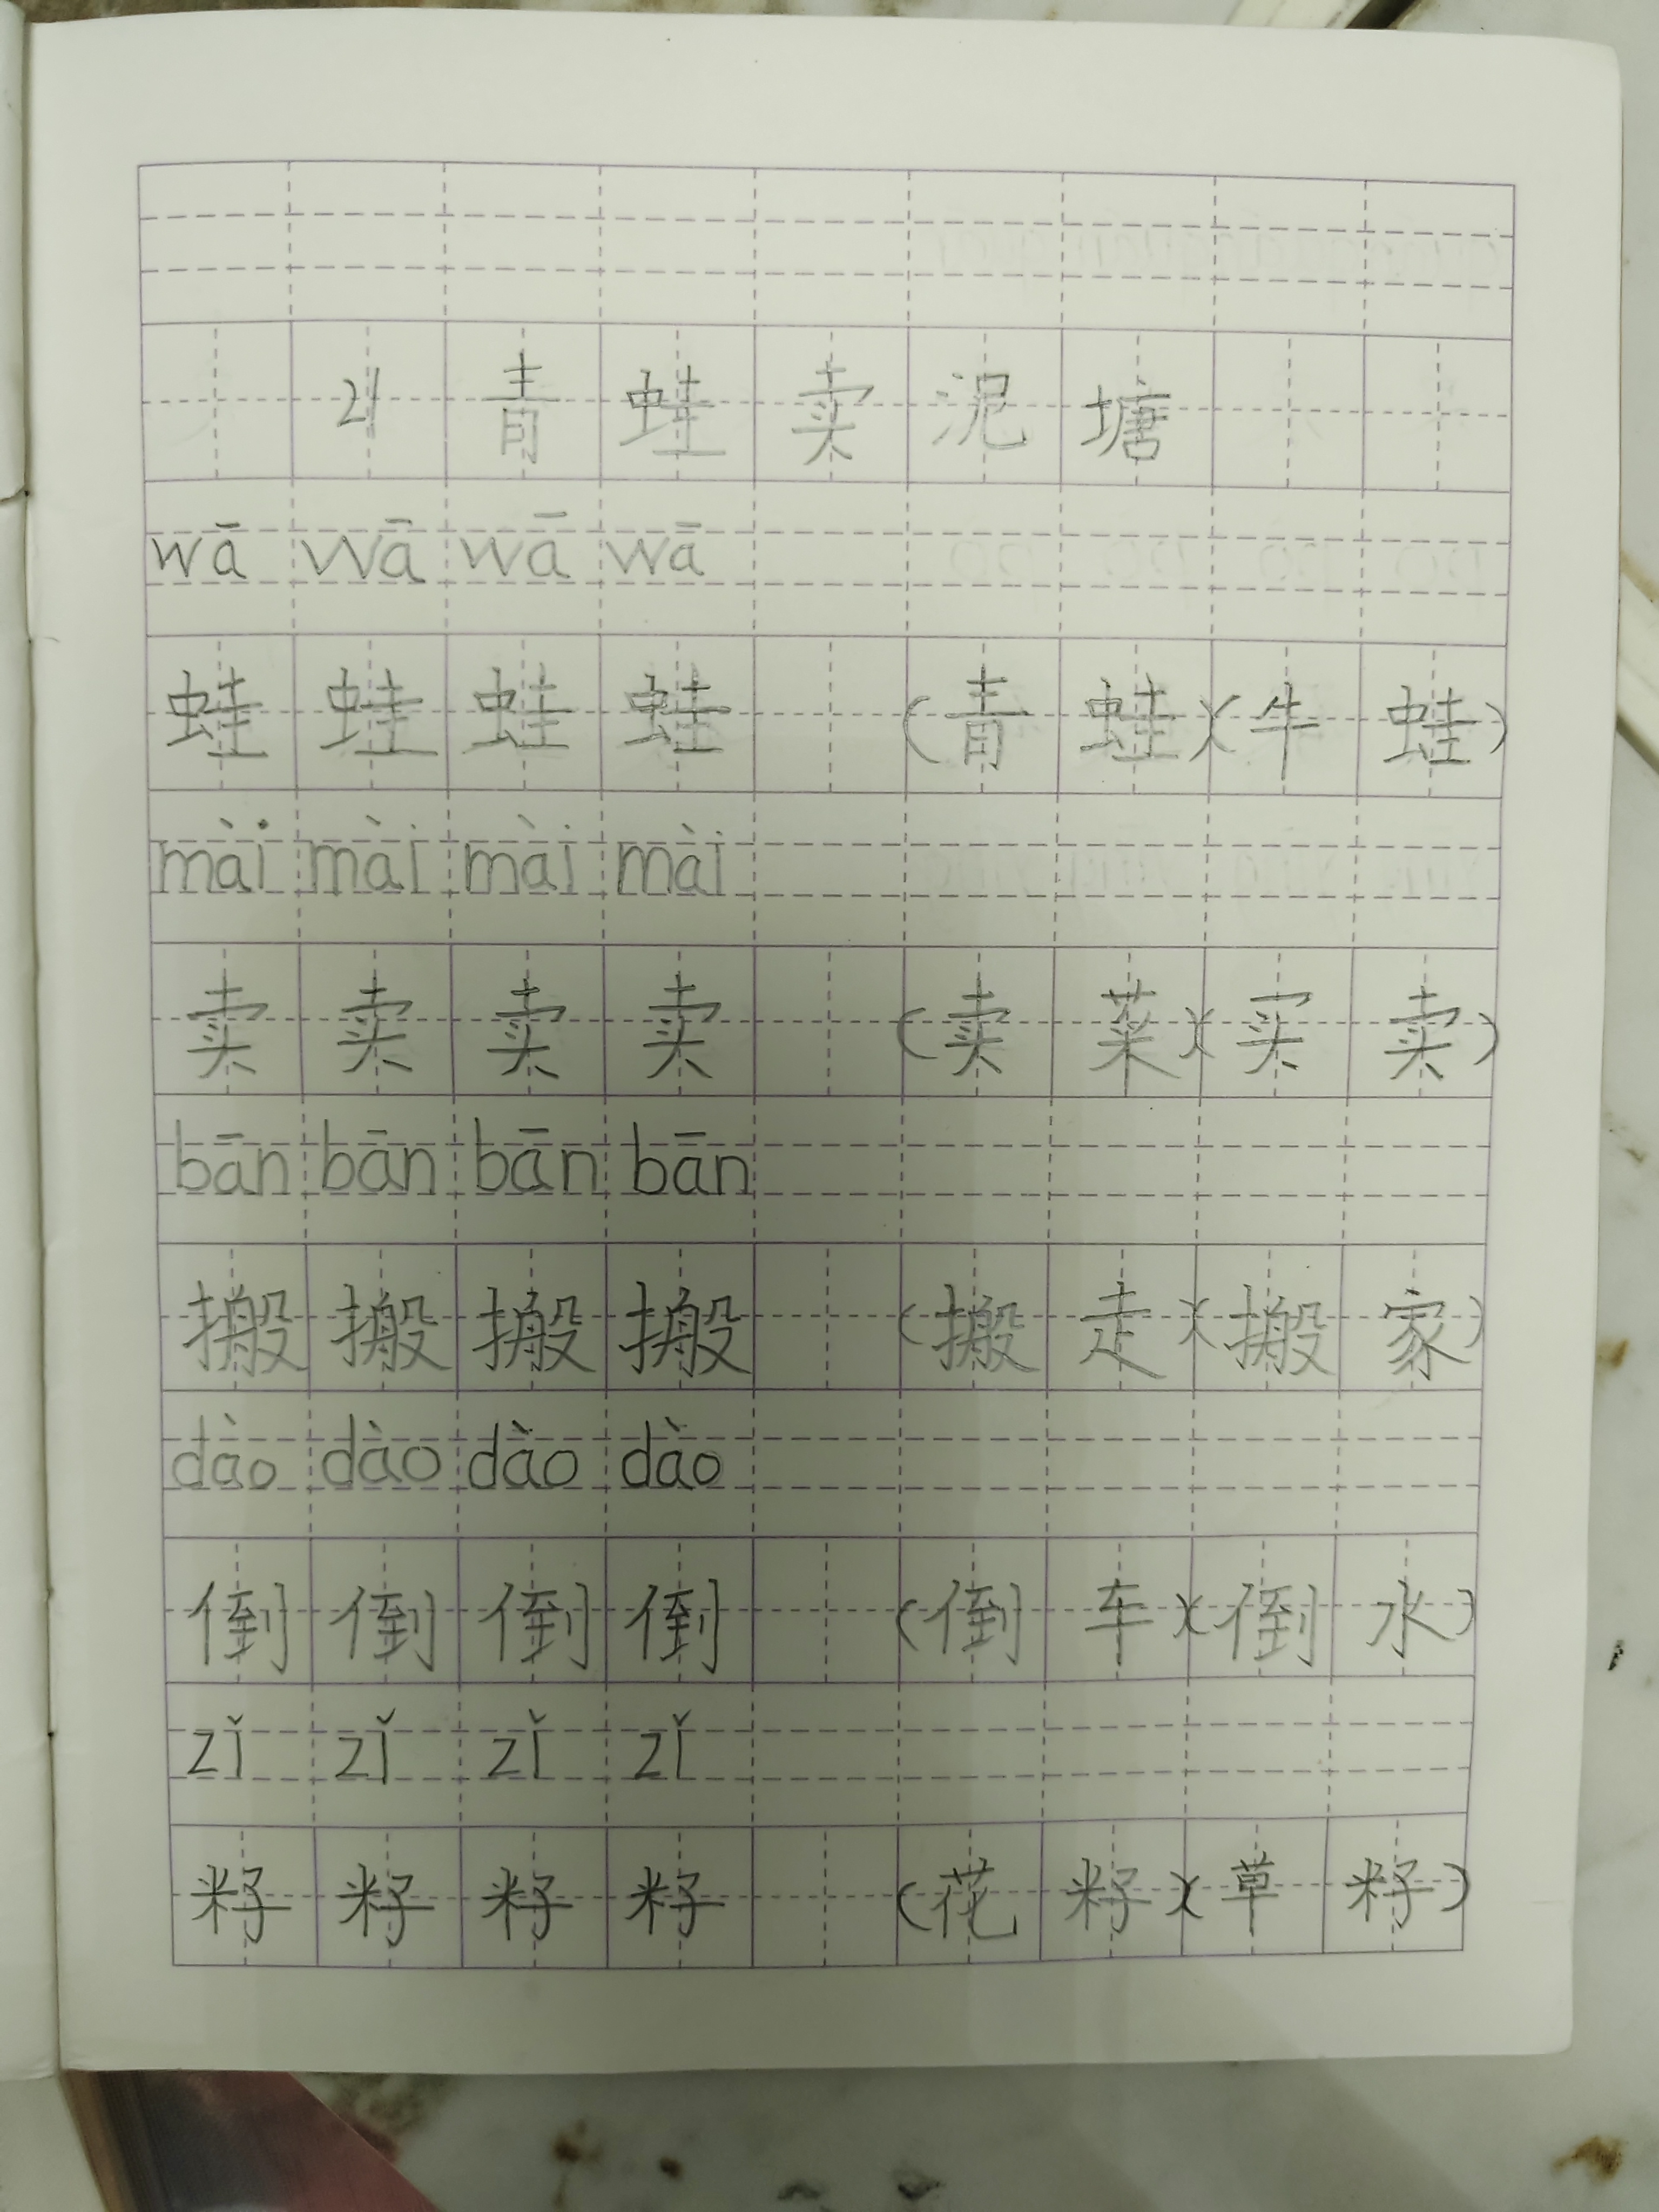 21 青蛙卖泥塘
wā wā wā wā
蛙 蛙 蛙 蛙 (青蛙)(牛蛙)
mài mài mài mài
卖 卖 卖 卖 (卖菜)(买卖)
bān bān bān bān
搬 搬 搬 搬 (搬走)(搬家)
dào dào dào dào
倒 倒 倒 倒 (倒车)(倒水)
zǐ zǐ zǐ zǐ
籽 籽 籽 籽 (花籽)(草籽)